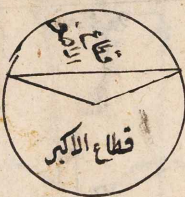 قطاع
الاصغر
قطاع الاكبر